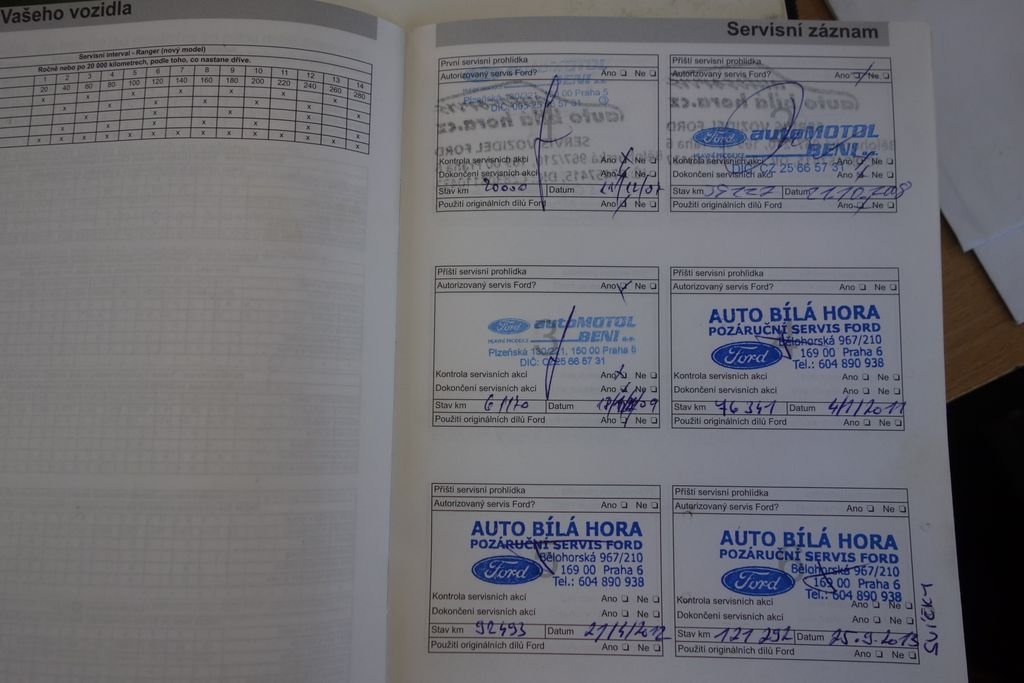 Vašeho vozidla
Servisní interval - Ranger (nový model)
Ročně nebo po 20 000 kilometrech, podle toho, co nastane dříve.
1 2 3 4 5 6 7 8 9 10 11 12 13 14
20 40 60 80 100 120 140 160 180 200 220 240 260 280
Servisní záznam
První servisní prohlídka
Autorizovaný servis Ford? Ano Ne
Kontrola servisních akcí Ano Ne
Dokončení servisních akcí Ano Ne
Stav km 20000 Datum
Použití originálních dílů Ford Ano Ne
Příští servisní prohlídka
Autorizovaný servis Ford? Ano Ne
Ford autoMOTOL
BENI a.s.
Kontrola servisních akcí Ano Ne
Dokončení servisních akcí Ano Ne
Stav km Datum 21.10.2008
Použití originálních dílů Ford Ano Ne
Příští servisní prohlídka
Autorizovaný servis Ford? Ano Ne
Ford autoMOTOL
BENI a.s.
Plzeňská 130/221, 150 00 Praha 5
Kontrola servisních akcí Ano Ne
Dokončení servisních akcí Ano Ne
Stav km 61170 Datum
Použití originálních dílů Ford Ano Ne
Příští servisní prohlídka
Autorizovaný servis Ford? Ano Ne
AUTO BÍLÁ HORA
POZÁRUČNÍ SERVIS FORD
Bělohorská 967/210
Ford 169 00 Praha 6
Tel.: 604 890 938
Kontrola servisních akcí Ano Ne
Dokončení servisních akcí Ano Ne
Stav km 76 341 Datum 4/1/2011
Použití originálních dílů Ford Ano Ne
Příští servisní prohlídka
Autorizovaný servis Ford? Ano Ne
AUTO BÍLÁ HORA
POZÁRUČNÍ SERVIS FORD
Bělohorská 967/210
Ford 169 00 Praha 6
Tel.: 604 890 938
Kontrola servisních akcí Ano Ne
Dokončení servisních akcí Ano Ne
Stav km 92493 Datum 27/4/2012
Použití originálních dílů Ford Ano Ne
Příští servisní prohlídka
Autorizovaný servis Ford? Ano Ne
AUTO BÍLÁ HORA
POZÁRUČNÍ SERVIS FORD
Bělohorská 967/210
Ford 169 00 Praha 6
Tel.: 604 890 938
Kontrola servisních akcí Ano Ne
Dokončení servisních akcí Ano Ne
Stav km 121 292 Datum 25.9.2013
Použití originálních dílů Ford Ano Ne
SVÍČKY